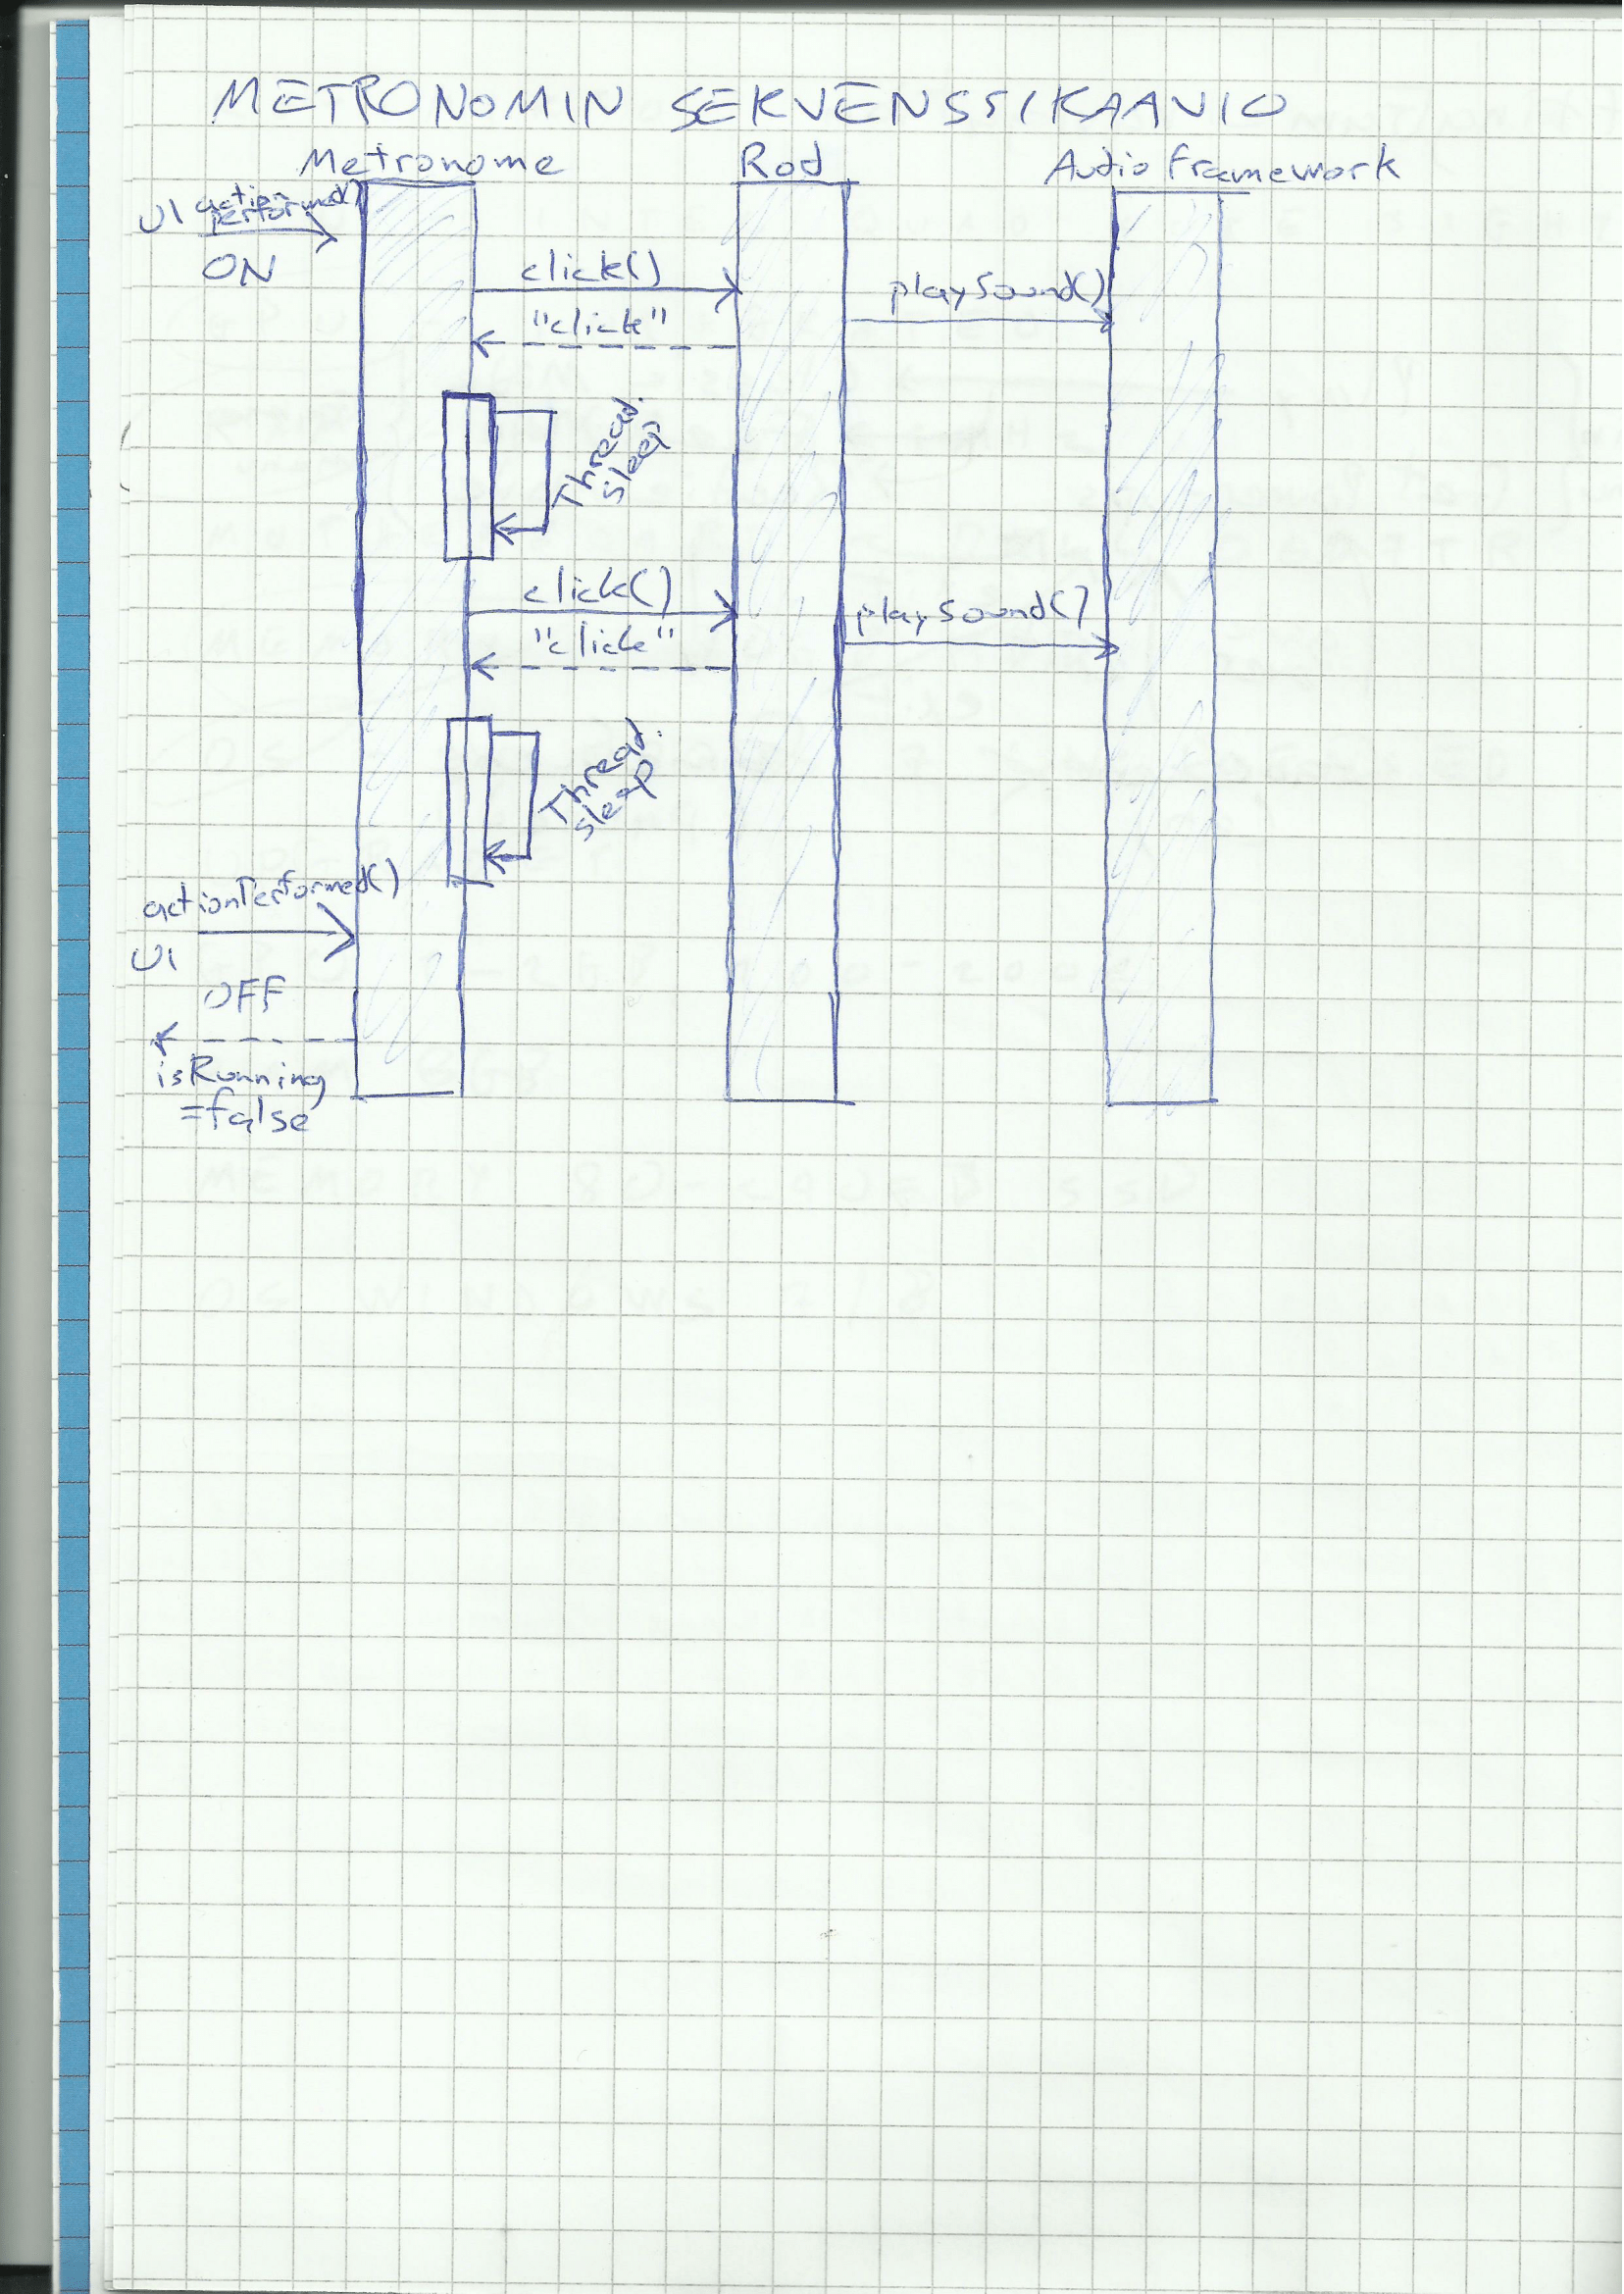 METRONOMIN SEKVENSSIKAAVIO
Metronome Rod Audio Framework
UI action
performed()
ON
click() playSound()
"click"
Thread.
sleep
click() playSound()
"click"
Thread.
sleep
actionPerformed()
UI
OFF
isRunning
=false